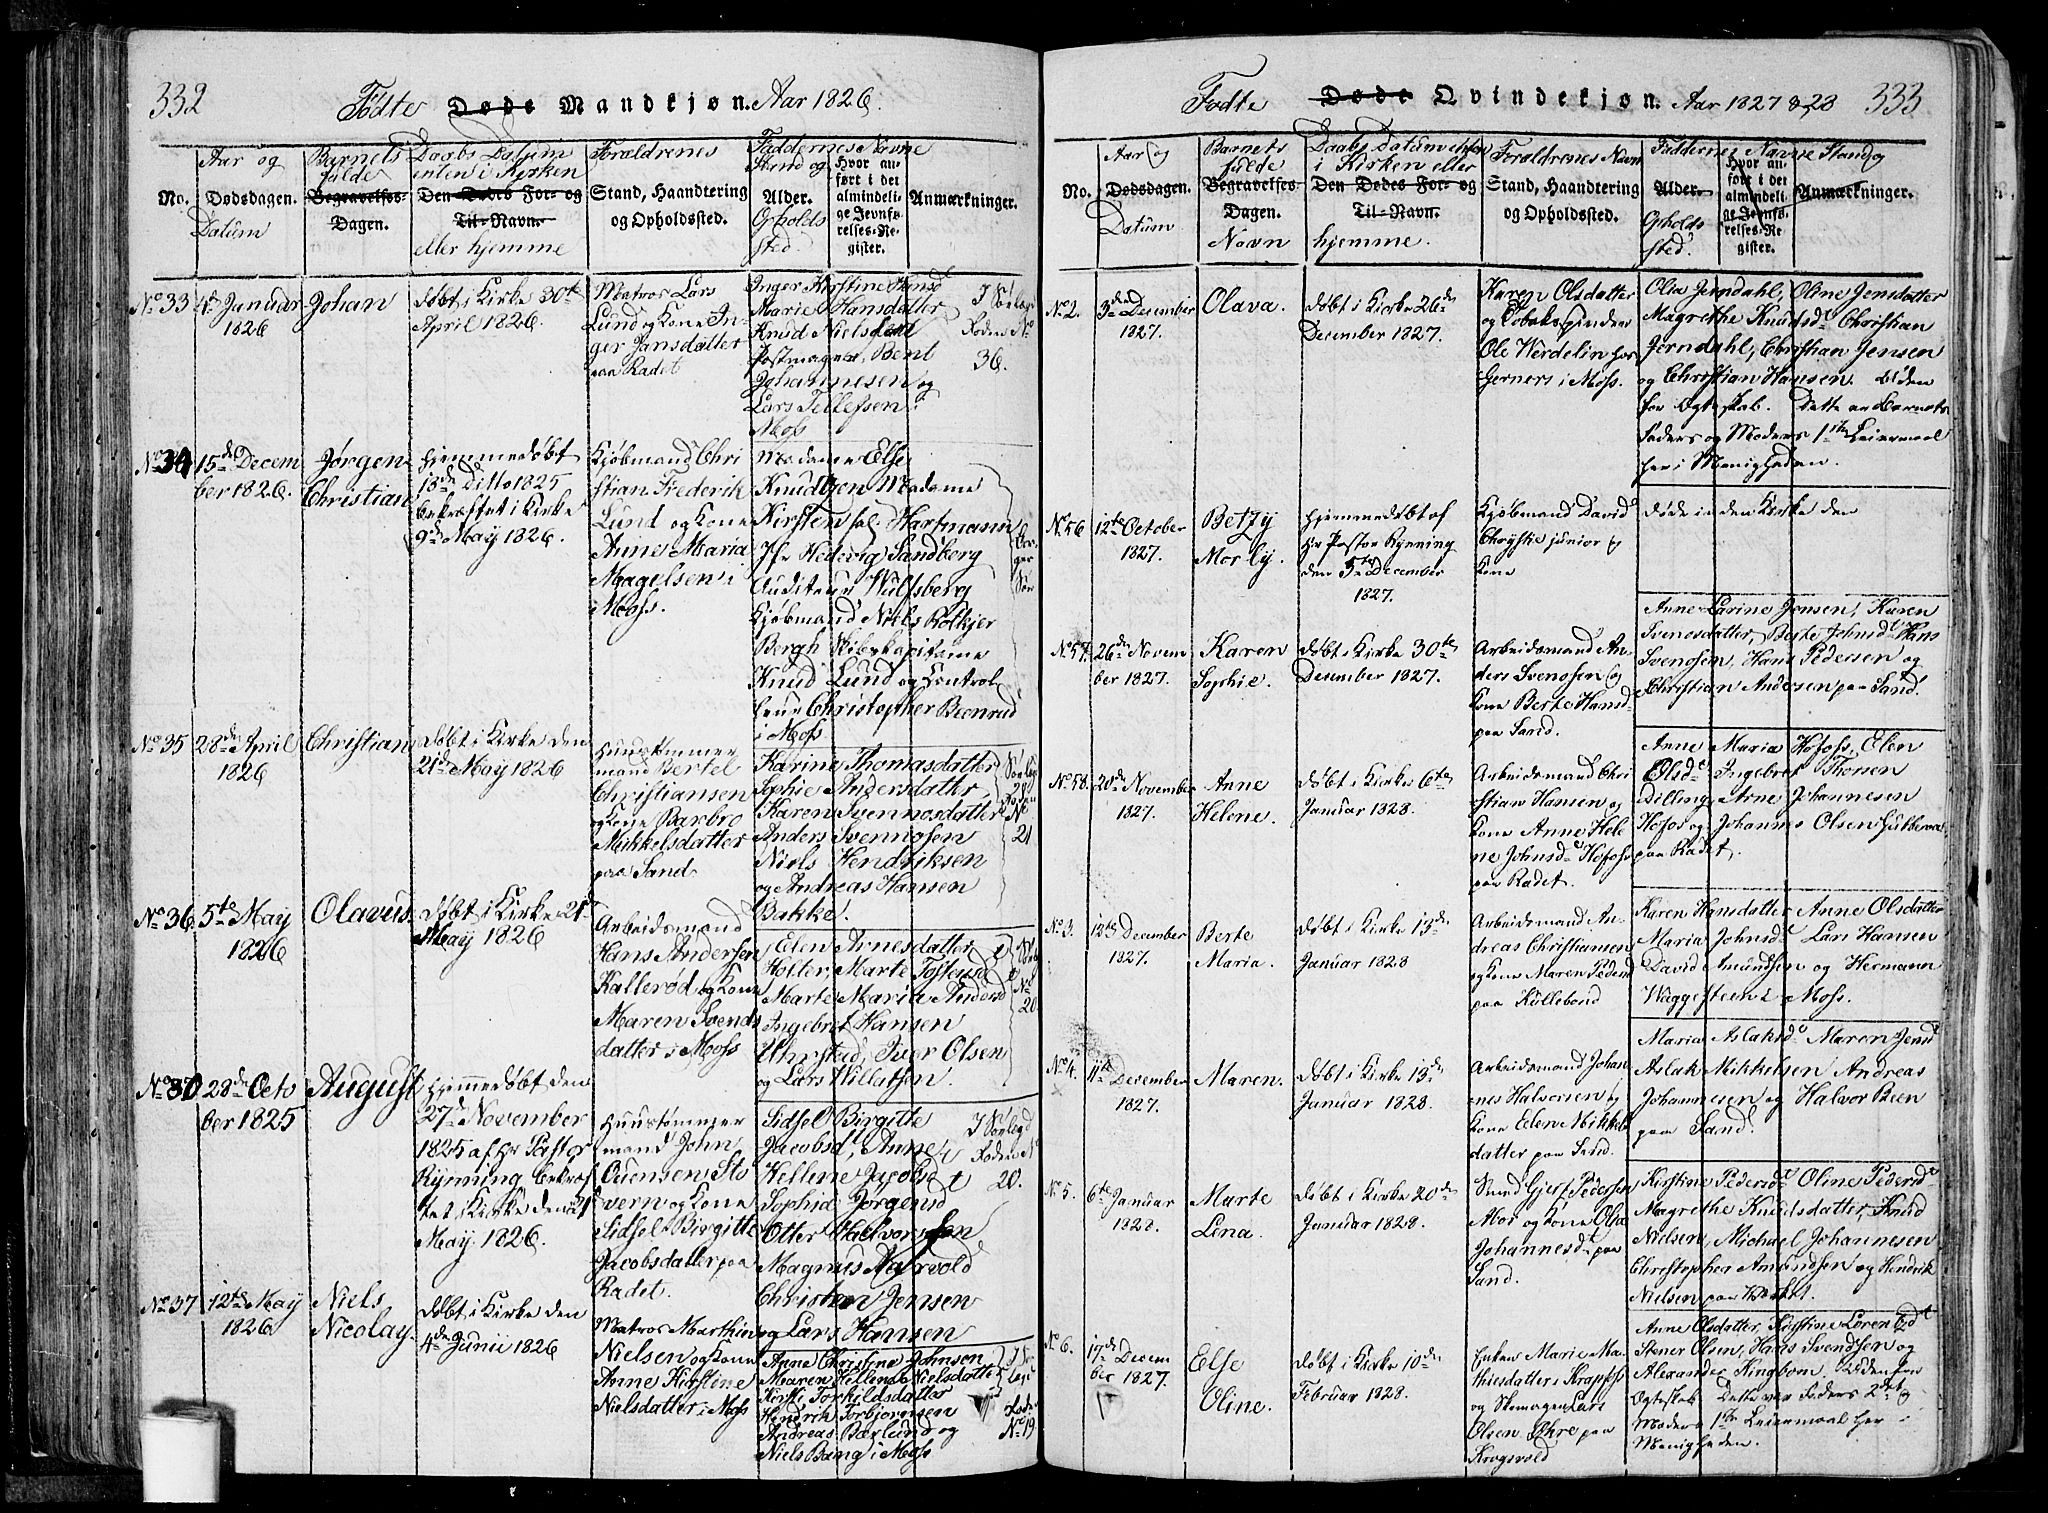 332
Fødte Døde Mandkjøn. Aar 1826.
No.
Aar og
Dødsdagen.
Datum
Barnets
fulde
Begravelses-
Dagen.
Daabs Datum
enten i Kirken
Den Dødes For- og
Til-Navn.
eller hjemme
Forældrenes
Stand, Haandtering
og Opholdssted.
Faddernes Navne
Stand og
Alder.
Opholds
sted.
Hvor an-
ført i det
almindeli-
ge Jevnfø-
relses-Re-
gister.
Anmærkninger.
No 33
4de Januar
1826
Johan
døbt i Kirke 30te
April 1826.
Matros Lars
Lund og Kone In-
ger Jansdatter
paa Radet
Inger Kirstine
Marie Hansdatter
Knud Nielsen
Postmager Bent
Johannesen og
Lars Tellefsen
Moss
36.
No 34
15de Decem
ber 1826.
Jørgen
Christian
hjemmedøbt
18de Ditto 1825
bekræftet i Kirke
9de May 1826.
Kjøbmand Chri
stian Frederik
Lund og Kone
Anne Maria
Magelsen i
i Moss.
Madame Else
Knudtzen Madame
Kirsten sal. Hartmann
Jfr Hedevig Sandberg
Auditeur Wulfsberg
Kjøbmand Niels Rotkjer
Bergh Skibskapitaine
Knud Lund og Control
leur Christopher Beenrud
i Moss
No 35
28de April
1826
Christian
døbt i Kirke den
21de May 1826
Huustømmer
mand Bertel
Christiansen
og Kone Barbro
Mikkelsdatter
paa Sand
Karine Thomasdatter
Sophie Andersdatter
Karen Svennosdatter
Anders Svennosen
Niels Hendriksen
og Andreas Hansen
Bakke.
No
21
No 36.
5te May
1826
Olavus.
døbt i Kirke 21de
May 1826
Arbeidsmand
Hans Andersen
Kallerød og Kone
Maren Svends
datter i Moss
Elen Arnesdatter
Holter, Marte Tostensd
Marte Maria Andersd
Ingebret Hansen
Uhrstad, Iver Olsen
og Lars Willatsen.
No
20
No 30
28de Octo
ber 1825
August
hjemmedøbt den
27de November
1825 af Hr Pastor
Rynning bekræf
tet i Kirke den 21
May 1826.
Huustømmer
mand John
Ouensen Sto
vern og Kone
Sidsel Birgitte
Jacobsdatter paa
Radet.
Sidsel Birgitte
Jacobsd, Anne
Hellene Jacobsdt
Sophia Jørgensd
Otter Halvorsen
Magnus Aarvold
Christian Jensen
og Lars Hansen
20.
No 37
12te May
1826
Niels
Nicolay.
døbt i Kirke den
4de Junii 1826
Matros Marthin
Nielsen og Kone
Anne Kirstine
Nielsdatter i Moss
Anne Christina Johnson
Maren Hellena Nielsdatter
Kirsti Torkildsdatter
Hendrik Torbjørnsen
Andreas Bærlund og
Niels Bang i Moss
No 19
Fødte Døde Qvindekjøn. Aar 1827 & 28 333
No.
Aar og
Dødsdagen.
Datum
Barnets
fulde
Begravelses-
Dagen.
Navn
Daabs Datum enten
i Kirken eller
Den Dødes For- og
Til-Navn.
hjemme.
Forældrenes Navn
Stand, Haandtering
og Opholdssted.
Faddernes Navne Stand og
Alder.
Opholds
sted.
Hvor an-
ført i det
almindeli-
ge Jevnfø-
relses-Re-
gister.
Anmærkninger.
No 2.
3de December
1827.
Olava.
døbt i Kirke 26de
December 1827.
Karen Olsdatter
og Tobakspinder
Ole Werdelin hos
Gerners i Moss.
Olia Jerndahl, Oline Jensdatter
Magrethe Knudsdt Christian
Jerndahl, Christian Jensen
og Christian Hansen. Uden
for Ægteskab. Dette er Barnets
Faders og Moders 1ste Leiermaal
her i Menigheden.
No 56
12te October
1827.
Betzy
Morly.
hjemmedøbt af
Hr Pastor Rynning
den 5te December
1827.
Kjøbmand David
Chrystie junior og
Kone
døde inden Kirke den
No 57.
26de Novem
ber 1827.
Karen
Sophie.
døbt i Kirke 30te
December 1827.
Arbeidsmand An-
ders Svenosen og
Kone Berte Hansd
paa Sand.
Anne Larine Jensen, Karen
Svenosdatter, Berte Johnsdt Hans
Svenosen, Hans Pedersen og
Christian Andersen paa Sand.
No 58.
20de November
1827.
Anne
Helene.
døbt i Kirke 6te
Januar 1828.
Arbeidsmand Chri
stian Hansen og
Kone Anne Hele
ne Johnsd Hofoss
paa Radet.
Anne Maria Hofoss, Elen
Olsdt Ingebret Thoresen
Dilling, Arne Johannesen
Hofos og Johannes Olsen
paa Radet.
No 3.
12te December
1827.
Berte
Maria.
døbt i Kirke 13de
Januar 1828
Arbeidsmand An-
dreas Christiansen
og Kone Maren Pedersd
paa Kullebond
Karen Hansdatter Anne Olsdatter
Maria Johnsdt Lars Hansen
David Amundsen og Hermann
Waggesteen i Moss.
No 4.
11te December
1827.
Maren.
døbt i Kirke 13de
Januar 1828.
Arbeidsmand Johan
nes Halvorsen og
Kone Elen Mikkels
datter paa Sand.
Maria Aslaksdt Maren Jensdt
Aslak Mikkelsen Andreas
Johannesen og Halvor Been
paa Sand.
No 5.
6te Januar
1828.
Marte
Lena.
døbt i Kirke 20de
Januar 1828.
Smed Gjert Pedersen
Mor og Kone Olea
Johannesdt paa
Sand.
Kirstine Pedersdt Oline Pedersdt
Magrethe Knudsdatter, Knud
Nielsen, Michael Johannesen
Christopher Amundsen og Hendrik
Nielsen paa Værket.
No 6.
17de Decem
ber 1827.
Else
Oline.
døbt i Kirke 10de
Februar 1828.
Enken Marie Ma
thiesdatter i Krapfoss
og Skomager Lars
Olsen Øhre paa
Krogsvold
Anne Olsdatter, Kirstine Loren Edt
Stener Olsen, Hans Svendsen og
Alexander Kingbom. Udenfor
Ægteskab Dette var Faders 2det og
Moders 1ste Leiermaal her i
Menigheden.